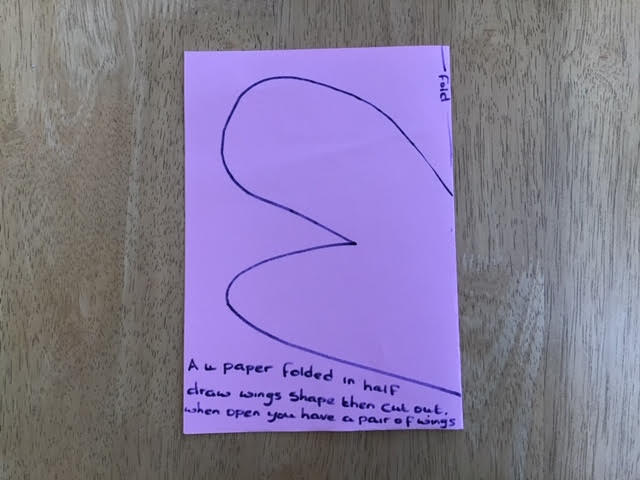 fold
A4 paper folded in half
draw wings shape then cut out.
when open you have a pair of wings